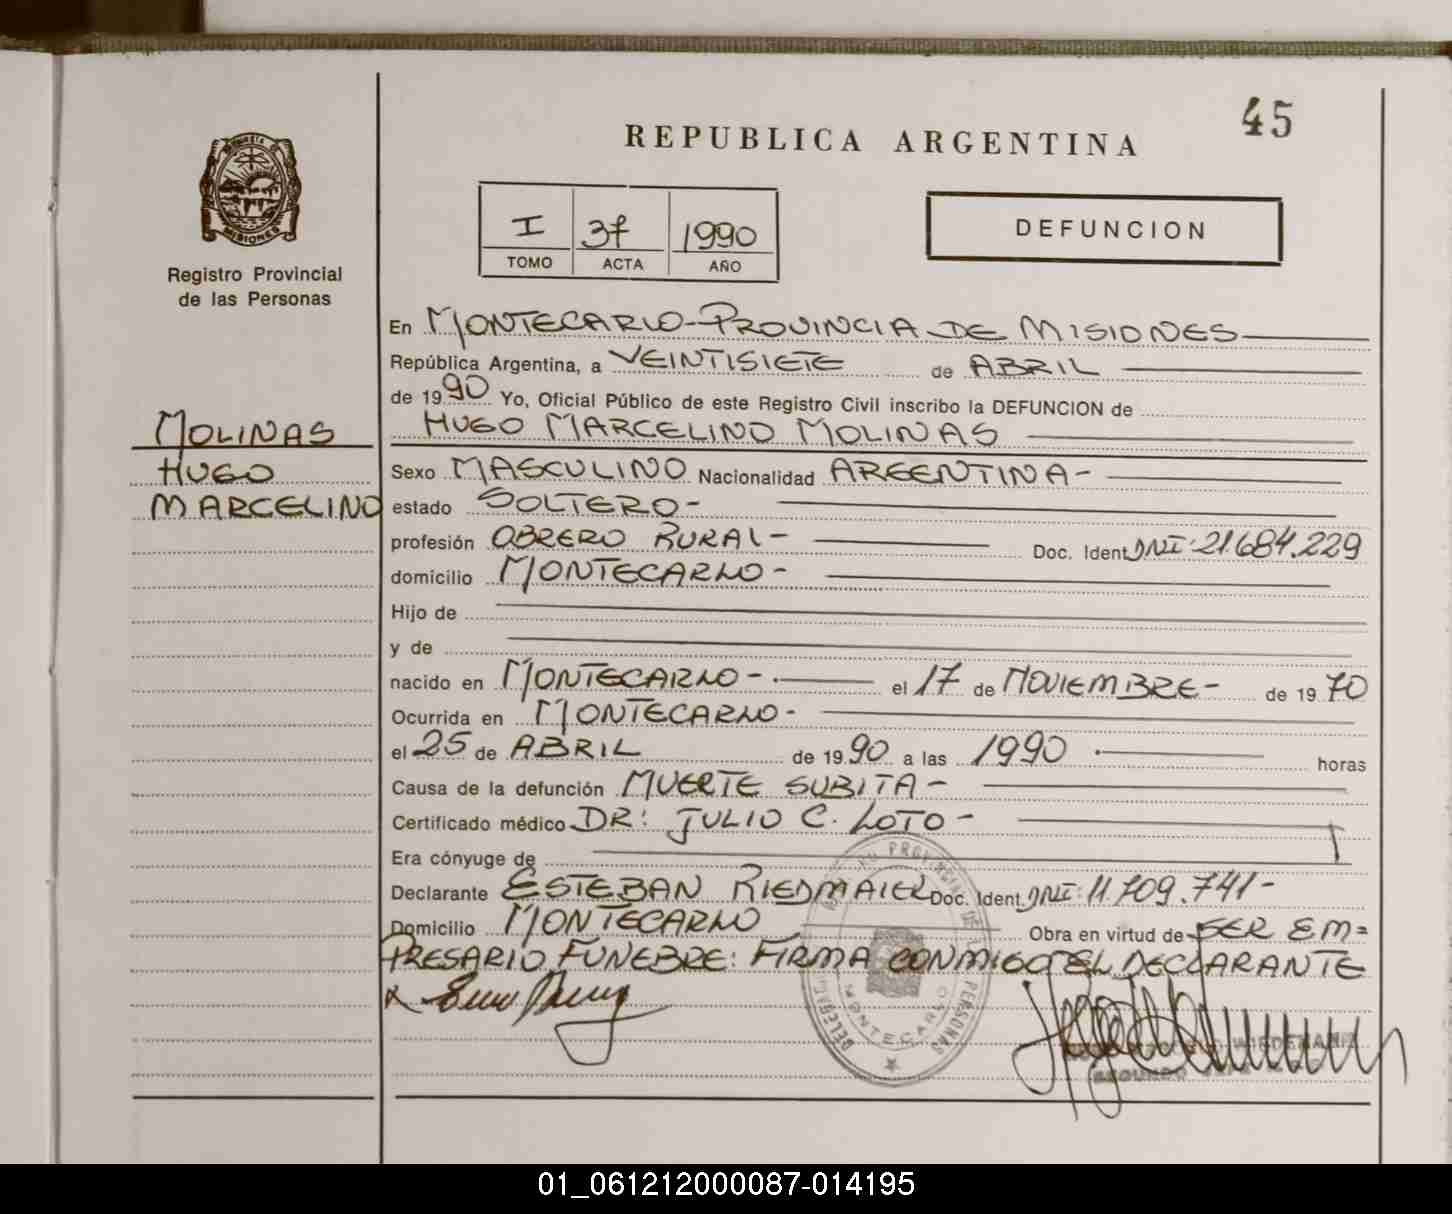 45
REPUBLICA ARGENTINA
MISIONES
Registro Provincial
de las Personas
I 37 1990
TOMO ACTA AÑO
DEFUNCION
En MONTECARLO-PROVINCIA DE MISIONES
República Argentina, a VEINTISIETE de ABRIL
de 1990 Yo, Oficial Público de este Registro Civil inscribo la DEFUNCION de
HUGO MARCELINO MOLINAS
MOLINAS
HUGO
MARCELINO
Sexo MASCULINO Nacionalidad ARGENTINA-
estado SOLTERO-
profesión OBRERO RURAL- Doc. Ident DNI: 21.684.229
domicilio MONTECARLO-
Hijo de
y de
nacido en MONTECARLO- el 17 de NOVIEMBRE- de 1970
Ocurrida en MONTECARLO-
el 25 de ABRIL de 1990 a las 1990 horas
Causa de la defunción MUERTE SUBITA-
Certificado médico DR: JULIO C. LOTO-
Era cónyuge de
Declarante ESTEBAN RIEDMAIER Doc. Ident. DNI: 11.709.741-
Domicilio MONTECARLO Obra en virtud de SER EM=
PRESARIO FUNEBRE: FIRMA CONMIGO EL DECLARANTE
PROVINCIAL DE PERSONAS
MONTECARLO
WIEDEMANN
SEGUNDO
01_061212000087-014195